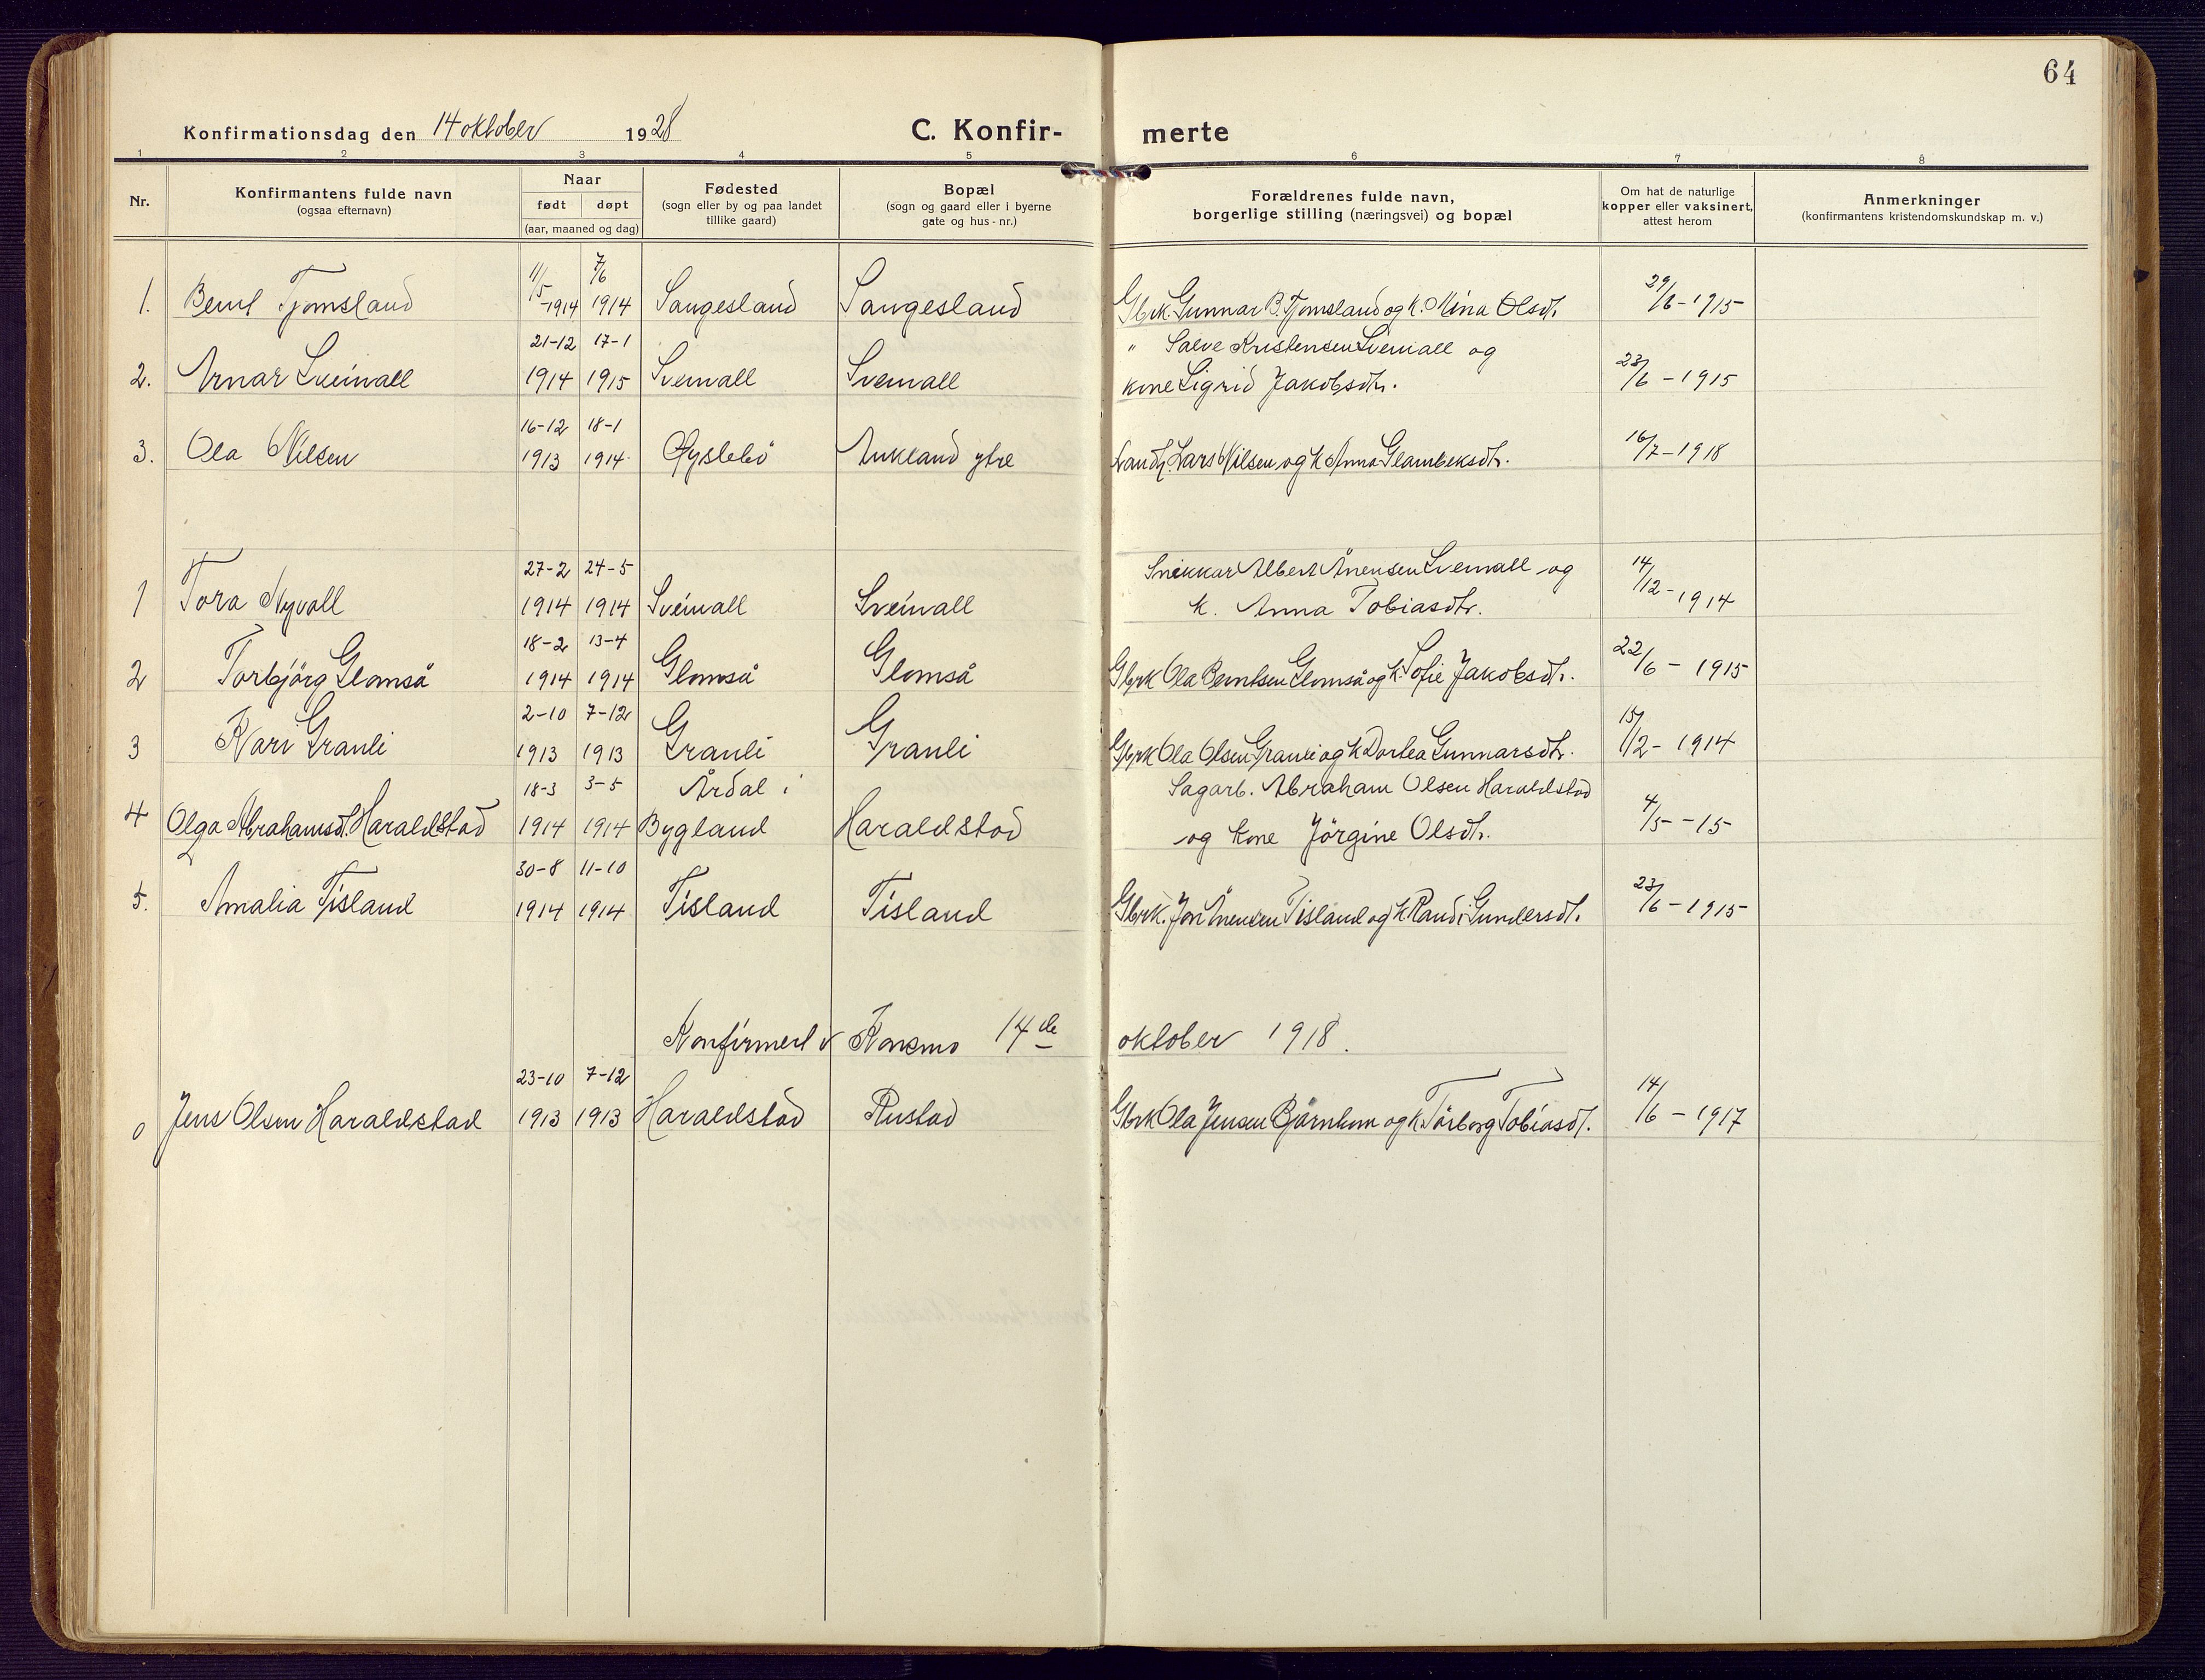 64
Konfirmationsdag den 14 oktober 1928
C. Konfir-merte
1 2 3 4 5 6 7 8
Nr.
Konfirmantens fulde navn
(ogsaa efternavn)
Naar
født døpt
(aar, maaned og dag)
Fødested
(sogn eller by og paa landet
tillike gaard)
Bopæl
(sogn og gaard eller i byerne
gate og hus-nr.)
Forældrenes fulde navn,
borgerlige stilling (næringsvei) og bopæl
Om hat de naturlige
kopper eller vaksinert,
attest herom
Anmerkninger
(konfirmantens kristendomskundskap m. v.)
11/5 7/6
1. Bernt Tjomsland -1914 1914 Sangesland Sangesland Gbrk. Gunnar B. Tjomsland og k. Mina Olsdt. 29/6-1915
21-12 17-1 " Salve Kristensen Sveinall og
2. Arnar Sveinall 1914 1915 Sveinall Sveinall kone Sigrid Jakobsdtr. 23/6-1915
16-12 18-1
3. Ola Nilsen 1913 1914 Øyslebö Aukland ytre Lars Nilsen og k Anna 16/7-1918
27-2 24-5 Snekkar Albert Ånensen Sveinall og
1 Tora Nyvoll 1914 1914 Sveinall Sveinall k. Anna Tobiasdtr. 14/12-1914
18-2 13-4
2 Torbjörg Glomså 1914 1914 Glomså Glomså Gbrk Ola Berntsen Glomså og k. Sofie Jakobsdt. 22/6-1915
2-10 7-12
3 Kari Granli 1913 1913 Granli Granli Gbrk Ola Olsen Granli og k Dortea Gunnarsdt. 15/12-1914
18-3 3-5 Årdal i Sagarb. Abraham Olsen Haraldstad
4 Olga Abrahamsdt. Haraldstad 1914 1914 Bygland Haraldstad og kone Jörgine Olsdt. 4/5-15
30-8 11-10
5. Amalia Tisland 1914 1914 Tisland Tisland Gbrk. Jon Ånensen Tisland og k Randi Gundersdt. 23/6-1915
Konfirmert i Konsmo 14de oktober 1918.
23-10 7-12
0 Jens Olsen Haraldstad 1913 1913 Haraldstad Rustad Gbrk Ola Jensen og k. Torborg Tobiasdt. 14/6-1917